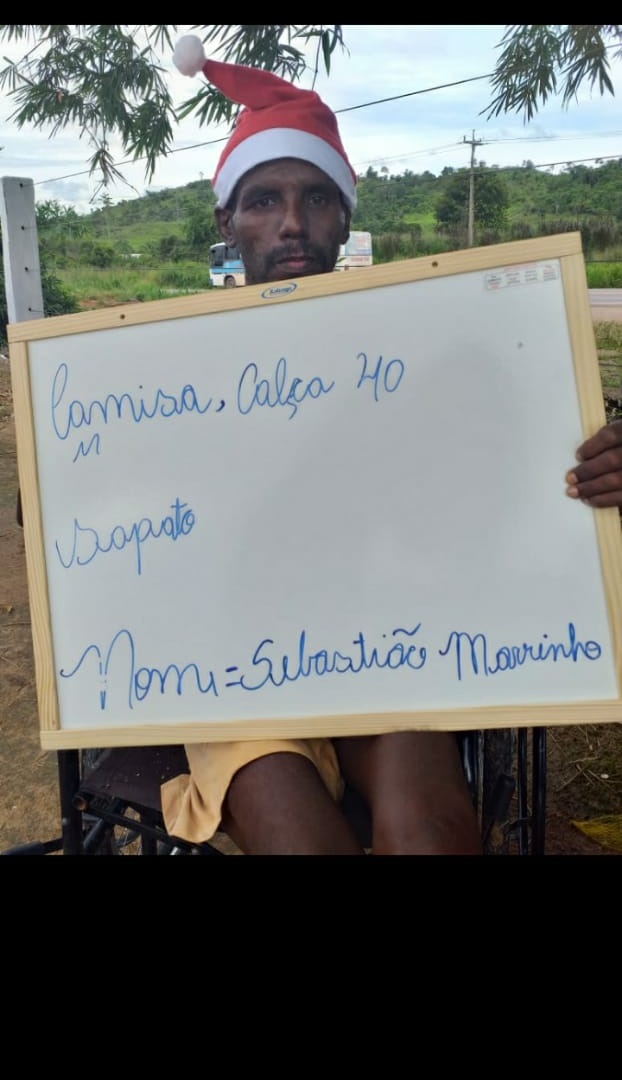 Camisa, Calça 40
M
Sapato
Nome = Sebastião Marrinho